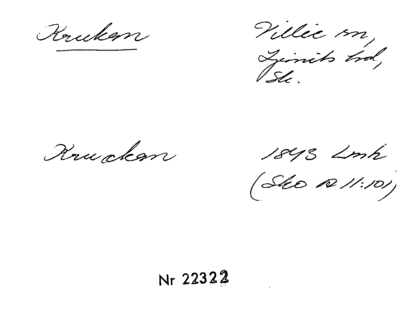 Kruken
Villie sn,
Ljunits hd,
Sk.
Kruckan
1843 Lmk
(Sko A 11:101)
Nr 22322